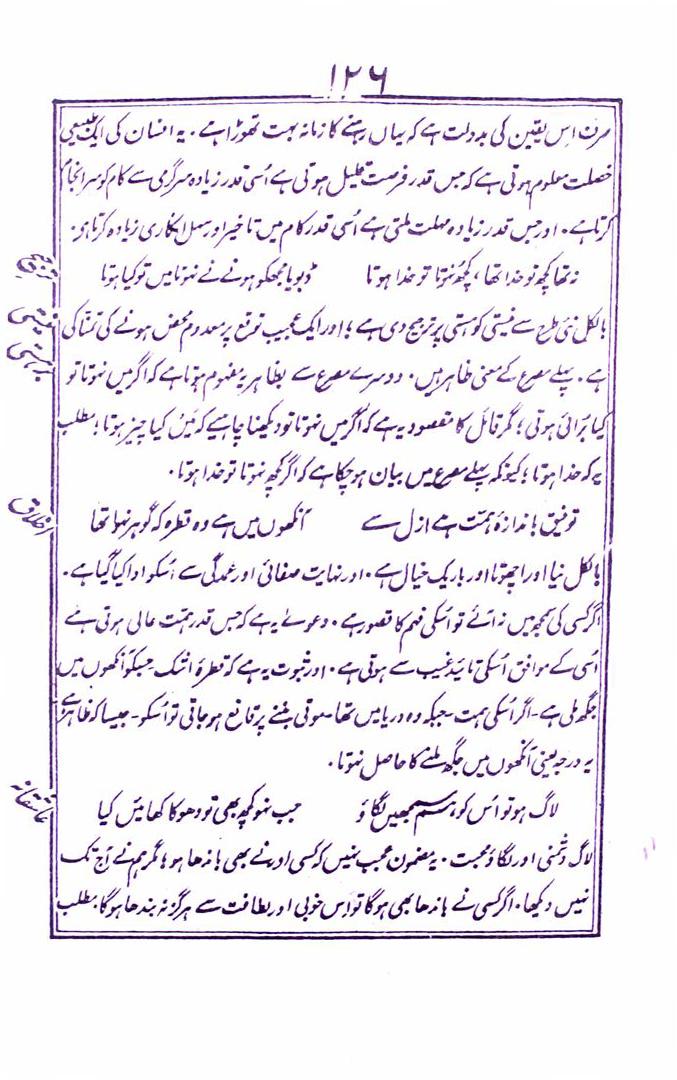 ۱۲۶
صرف اس یقین کی بدولت ہے کہ یہاں رہنے کا زمانہ بہت تھوڑا ہے۔ یہ انسان کی ایک طبیعی
خصلت معلوم ہوتی ہے کہ جس قدر فرصت قلیل ہوتی ہے اُسی قدر زیادہ سرگرمی سے کام کو سرانجام
کرتا ہے۔ اور جس قدر زیادہ مہلت ملتی ہے اُسی قدر کام میں تاخیر اور سہل انکاری زیادہ کرتا ہی۔
نہ تھا کچھ تو خدا تھا، کچھ نہوتا تو خدا ہوتا ڈبویا مجھکو ہونے نے نہوتا میں تو کیا ہوتا
ترجیح
نیستی
بر ہستی
بالکل نئی طرح سے نیستی کو ہستی پر ترجیح دی ہے؛ اور ایک عجیب توقع پر معدوم محض ہونے کی تمنا کی
ہے۔ پہلے مصرع کے معنی ظاہر ہیں۔ دوسرے مصرع سے بظاہر یہ مفہوم ہوتا ہے کہ اگر میں نہوتا تو
کیا بُرائی ہوتی؛ مگر قائل کا مقصود یہ ہے کہ اگر میں نہوتا تو دیکھنا چاہیے کہ میں کیا چیز ہوتا؛ مطلب
یہ کہ خدا ہوتا؛ کیونکہ پہلے مصرع میں بیان ہو چکا ہے کہ اگر کچھ نہوتا تو خدا ہوتا۔
توفیق باندازۂ ہمت ہے ازل سے آنکھوں میں ہے وہ قطرہ کہ گوہر نہوا تھا
اخلاق
بالکل نیا اور اچھوتا اور باریک خیال ہے۔ اور نہایت صفائی اور عمدگی سے اُسکو ادا کیا گیا ہے۔
اگر کسی کی سمجھ میں نہ آئے تو اُسکی فہم کا قصور ہے۔ دعوےٰ یہ ہے کہ جس قدر ہمت عالی ہوتی ہے
اُسی کے موافق اُسکی تائید غیب سے ہوتی ہے۔ اور ثبوت یہ ہے کہ قطرۂ اشک جسکو آنکھوں میں
جگہ ملی ہے - اگر اُسکی ہمت - جبکہ وہ دریا میں تھا - موتی بننے پر قانع ہو جاتی تو اُسکو - جیسا کہ ظاہر ہے
یہ درجہ یعنی آنکھوں میں جگہ ملنے کا حاصل نہوتا۔
لاگ ہو تو اُس کو ہم سمجھیں لگاؤ جب نہو کچھ بھی تو دھوکا کھائیں کیا
عاشقانہ
لاگ دشمنی اور لگاؤ محبت۔ یہ مضمون عجب نہیں کہ کسی اور نے بھی باندھا ہو؛ مگر ہم نے آج تک
نہیں دیکھا۔ اگر کسی نے باندھا بھی ہوگا تو اِس خوبی اور لطافت سے ہرگز نہ بندھا ہوگا۔ مطلب